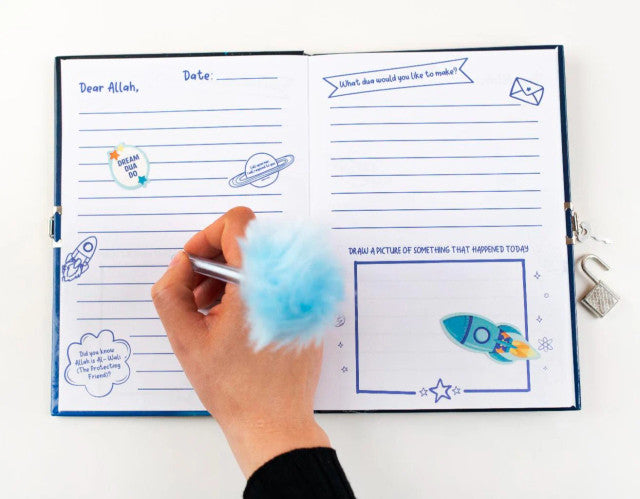 Date:
Dear Allah,
DREAM
DUA
DO
Did you know
Allah is Al-Wali
(The Protecting
Friend)?
What dua would you like to make?
DRAW A PICTURE OF SOMETHING THAT HAPPENED TODAY